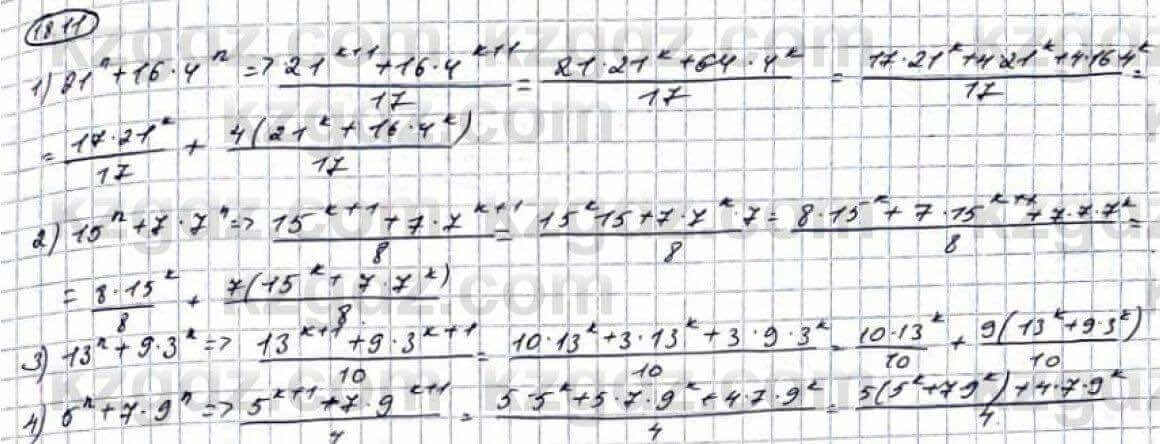 18.11
1) 21ⁿ+16·4ⁿ => (21ᵏ⁺¹+16·4ᵏ⁺¹)/17 = (21·21ᵏ+64·4ᵏ)/17 = (17·21ᵏ+4·21ᵏ+4·16·4ᵏ)/17 =
= 17·21ᵏ/17 + 4(21ᵏ+16·4ᵏ)/17
2) 15ⁿ+7·7ⁿ => (15ᵏ⁺¹+7·7ᵏ⁺¹)/8 = (15ᵏ15+7·7ᵏ·7)/8 = (8·15ᵏ+7·15ᵏ⁺¹+7·7·7ᵏ)/8 =
= 8·15ᵏ/8 + 7(15ᵏ+7·7ᵏ)/8
3) 13ⁿ+9·3ᵏ => (13ᵏ⁺¹+9·3ᵏ⁺¹)/10 = (10·13ᵏ+3·13ᵏ+3·9·3ᵏ)/10 = 10·13ᵏ/10 + 9(13ᵏ+9·3ᵏ)/10
4) 5ⁿ+7·9ⁿ => (5ᵏ⁺¹+7·9ᵏ⁺¹)/4 = (5·5ᵏ+5·7·9ᵏ+4·7·9ᵏ)/4 = (5(5ᵏ+79ᵏ)+4·7·9ᵏ)/4
kzgdz.com